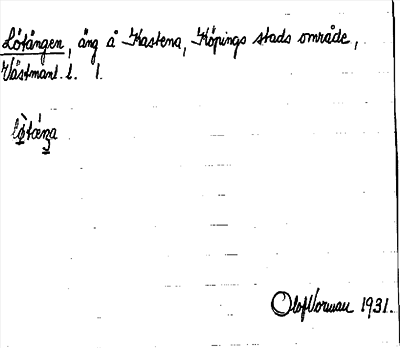 Lötängen, äng å Kastena, Köpings stads område,
Västmanl. l. 1.
Olof Vorman 1931.